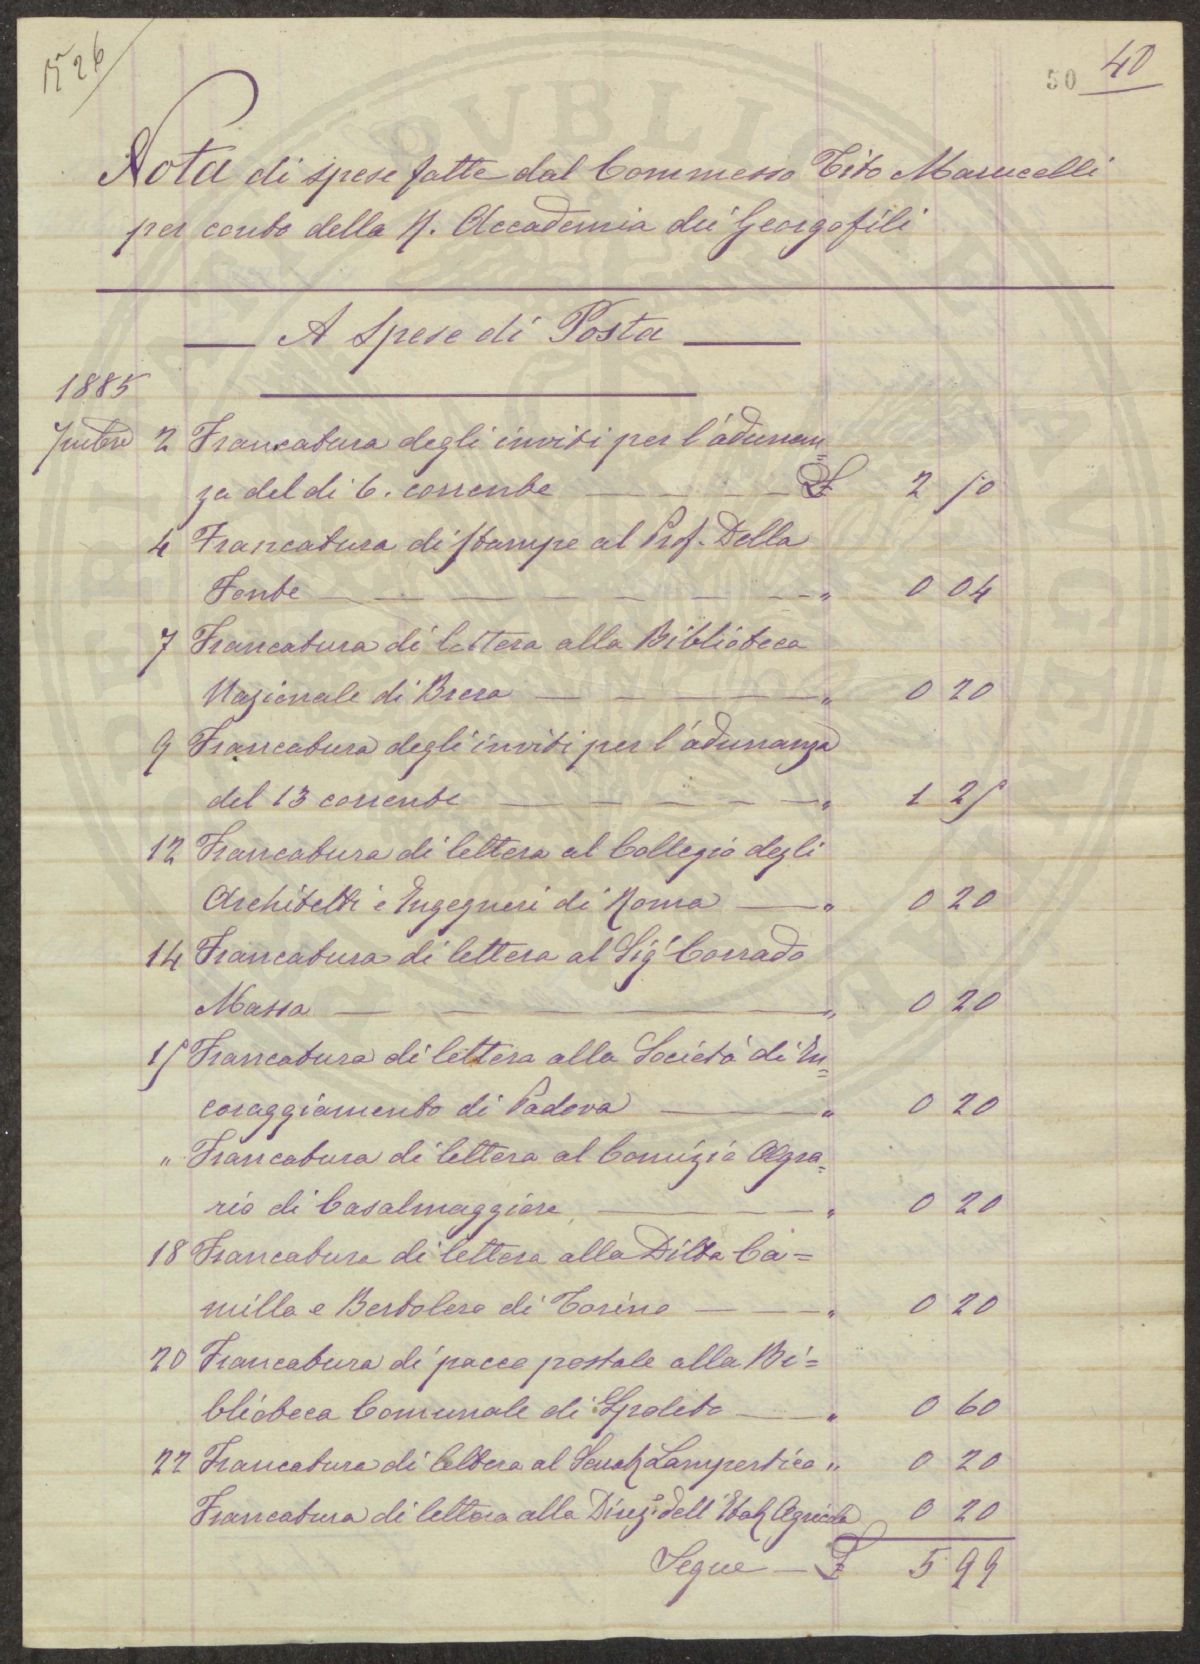 N° 26
50 40
Nota di spese fatte dal Commesso Tito Marucelli
per conto della R. Accademia dei Georgofili
A Spese di Posta
1885
2 Francatura degli inviti per l'adunan=
za del di 6. corrente £ 2 50
4 Francatura di stampe al Prof. Della
Fonte " 0 04
7 Francatura di lettera alla Biblioteca
Nazionale di Brera " 0 20
9 Francatura degli inviti per l'adunanza
del 13 corrente " 1 25
12 Francatura di lettera al Collegio degli
Architetti e Ingegneri di Roma " 0 20
14 Francatura di lettera al Sigr Corrado
Massa " 0 20
15 Francatura di lettera alla Società di In=
coraggiamento di Padova " 0 20
" Francatura di lettera al Comizio Agra=
rio di Casalmaggiore " 0 20
18 Francatura di lettera alla Ditta Ca=
milla e Bertolero di Torino " 0 20
20 Francatura di pacco postale alla Bi=
blioteca Comunale di Spoleto " 0 60
22 Francatura di lettera al Senat. Lampertico " 0 20
Francatura di lettera alla Direz. dell'Ital. Agricola 0 20
Segue £ 5 99